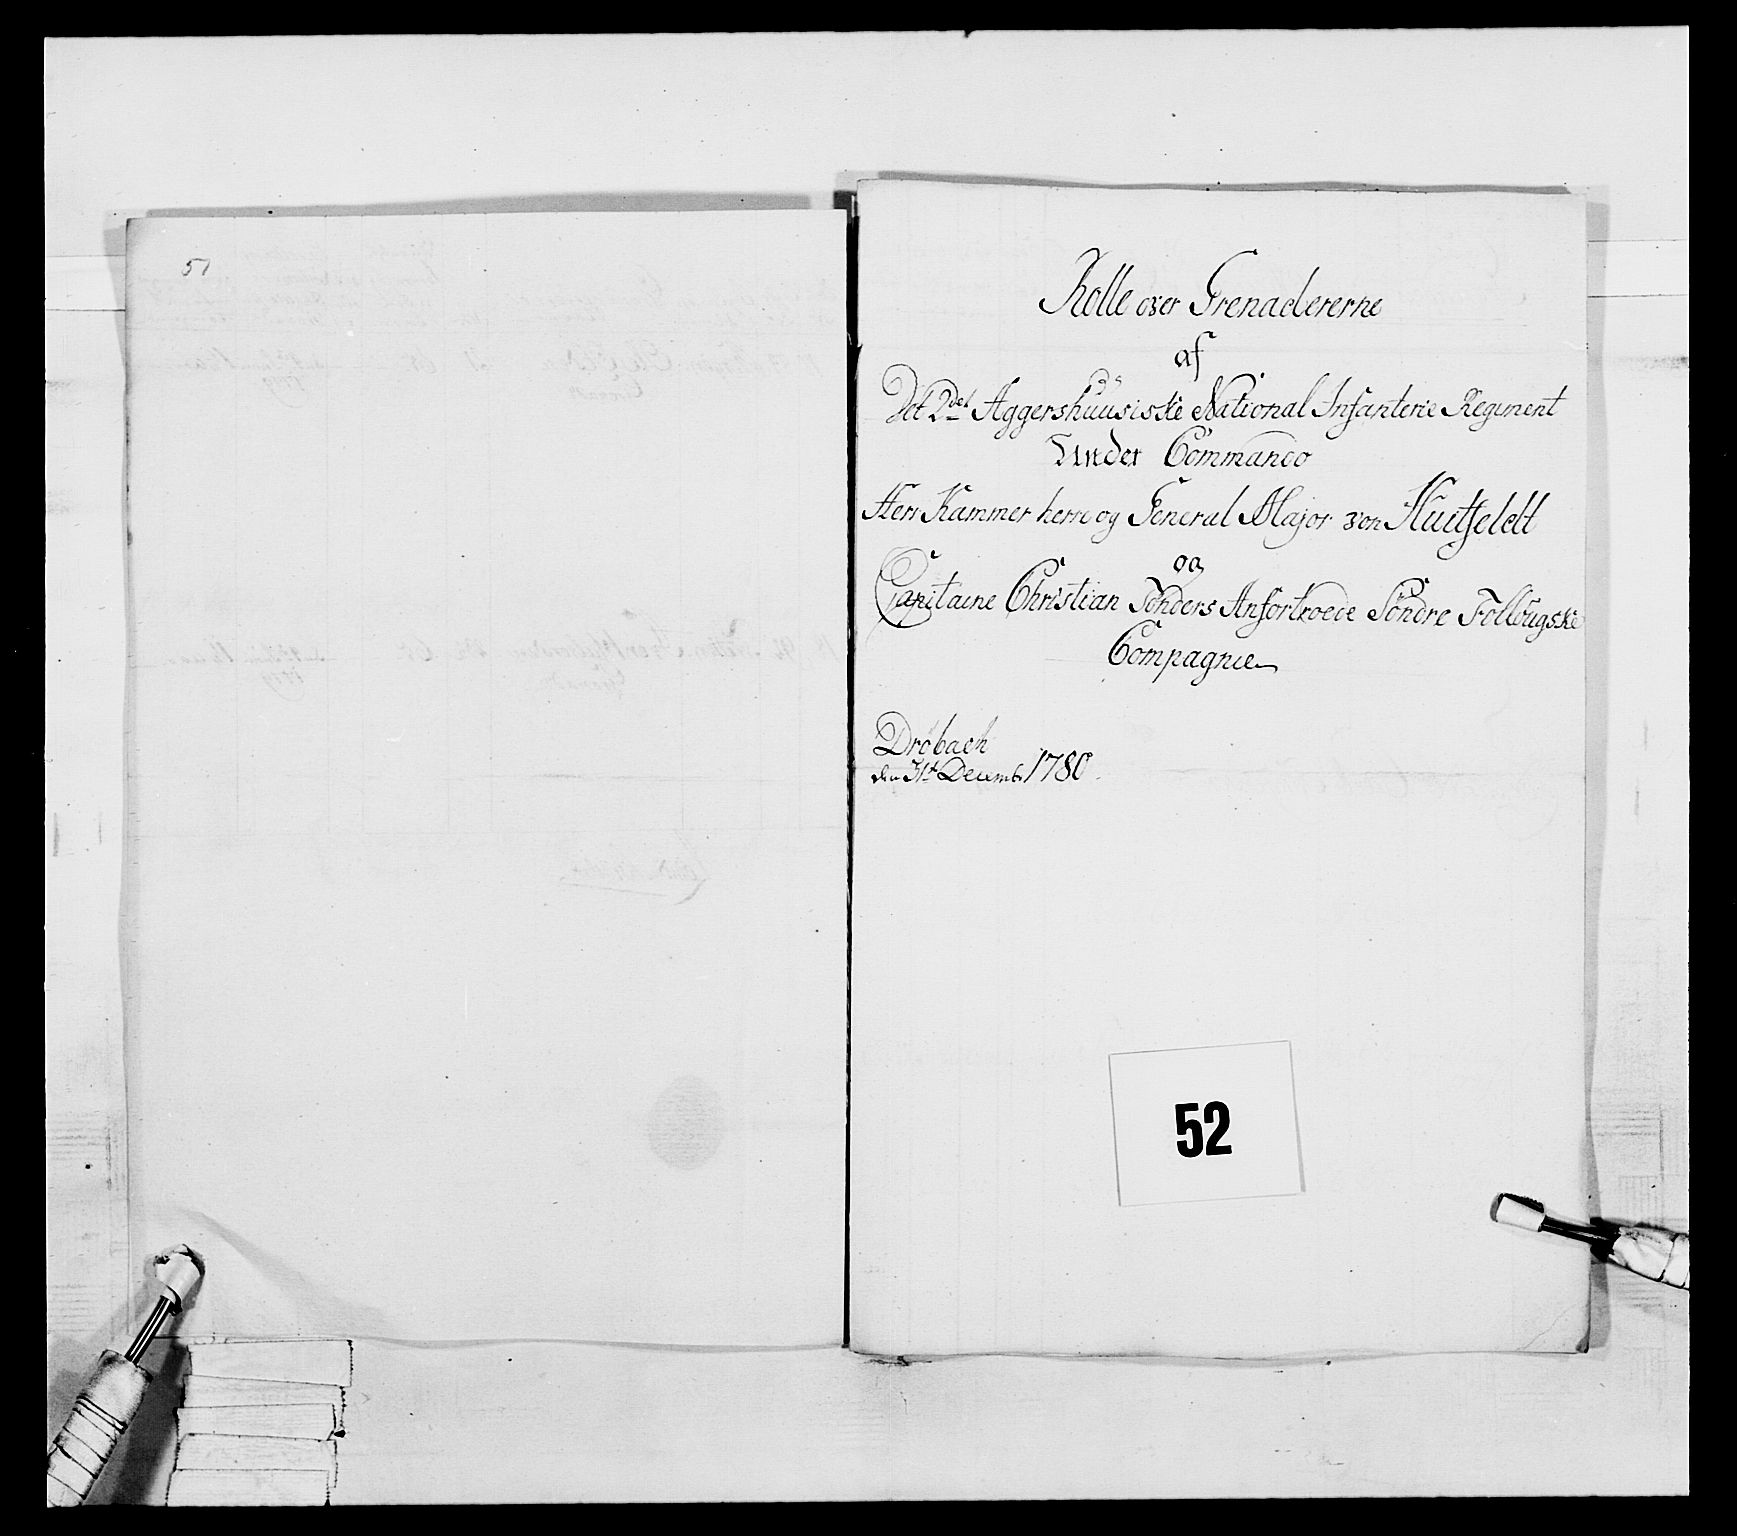 51
Rolle over Grenadererne
af
Det 2det Aggershuusiske National Infanterie Regiment
Under Commando
Herr Kammer herre og General Major von Huitfeldt
og
Capitaine Christian Sönders Anfortroede Söndre Follougske
Compagnie
Dröbach
den 31t Decembr 1780.
52